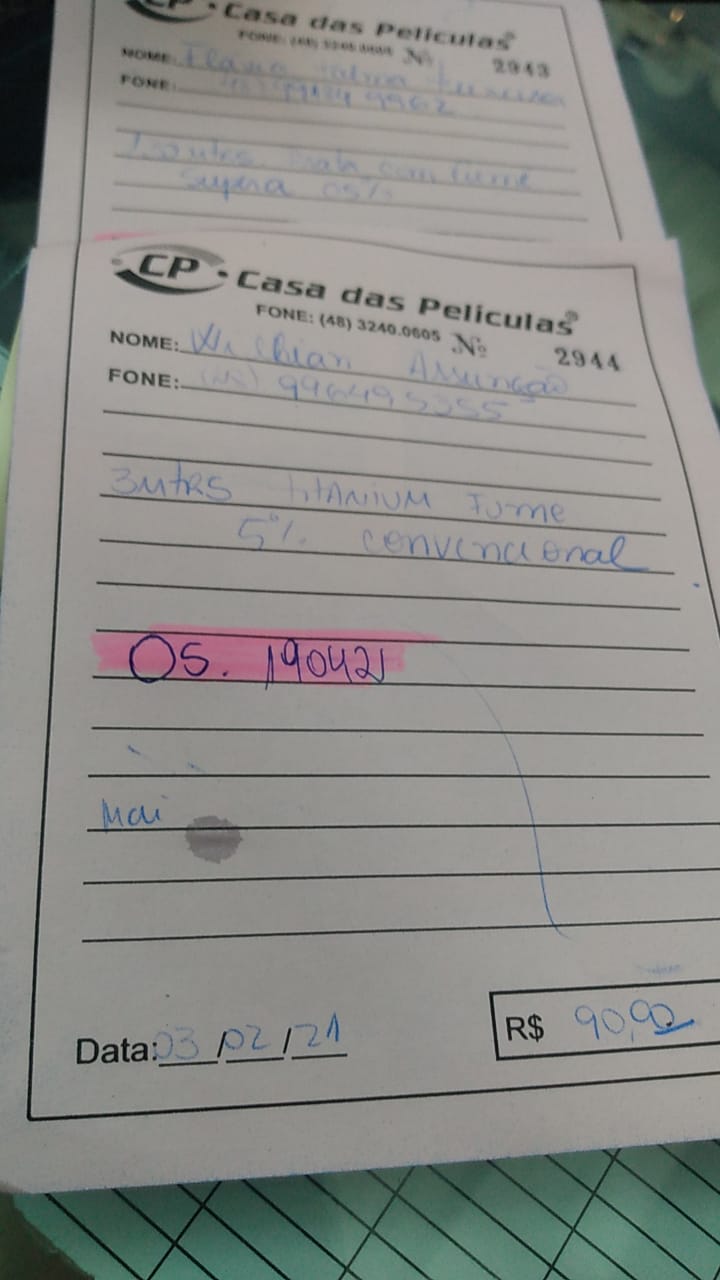 CP • Casa das Películas®
Nº 2943
NOME:
FONE: 9962
com fumê
05%
CP • Casa das Películas®
FONE: (48) 3240.0605 Nº 2944
NOME: Assunção
FONE: (48) 996495355
3mtrs titanium Fume
5% convencional
OS. 190421
Mai
Data: 03/02/21
R$ 90,90